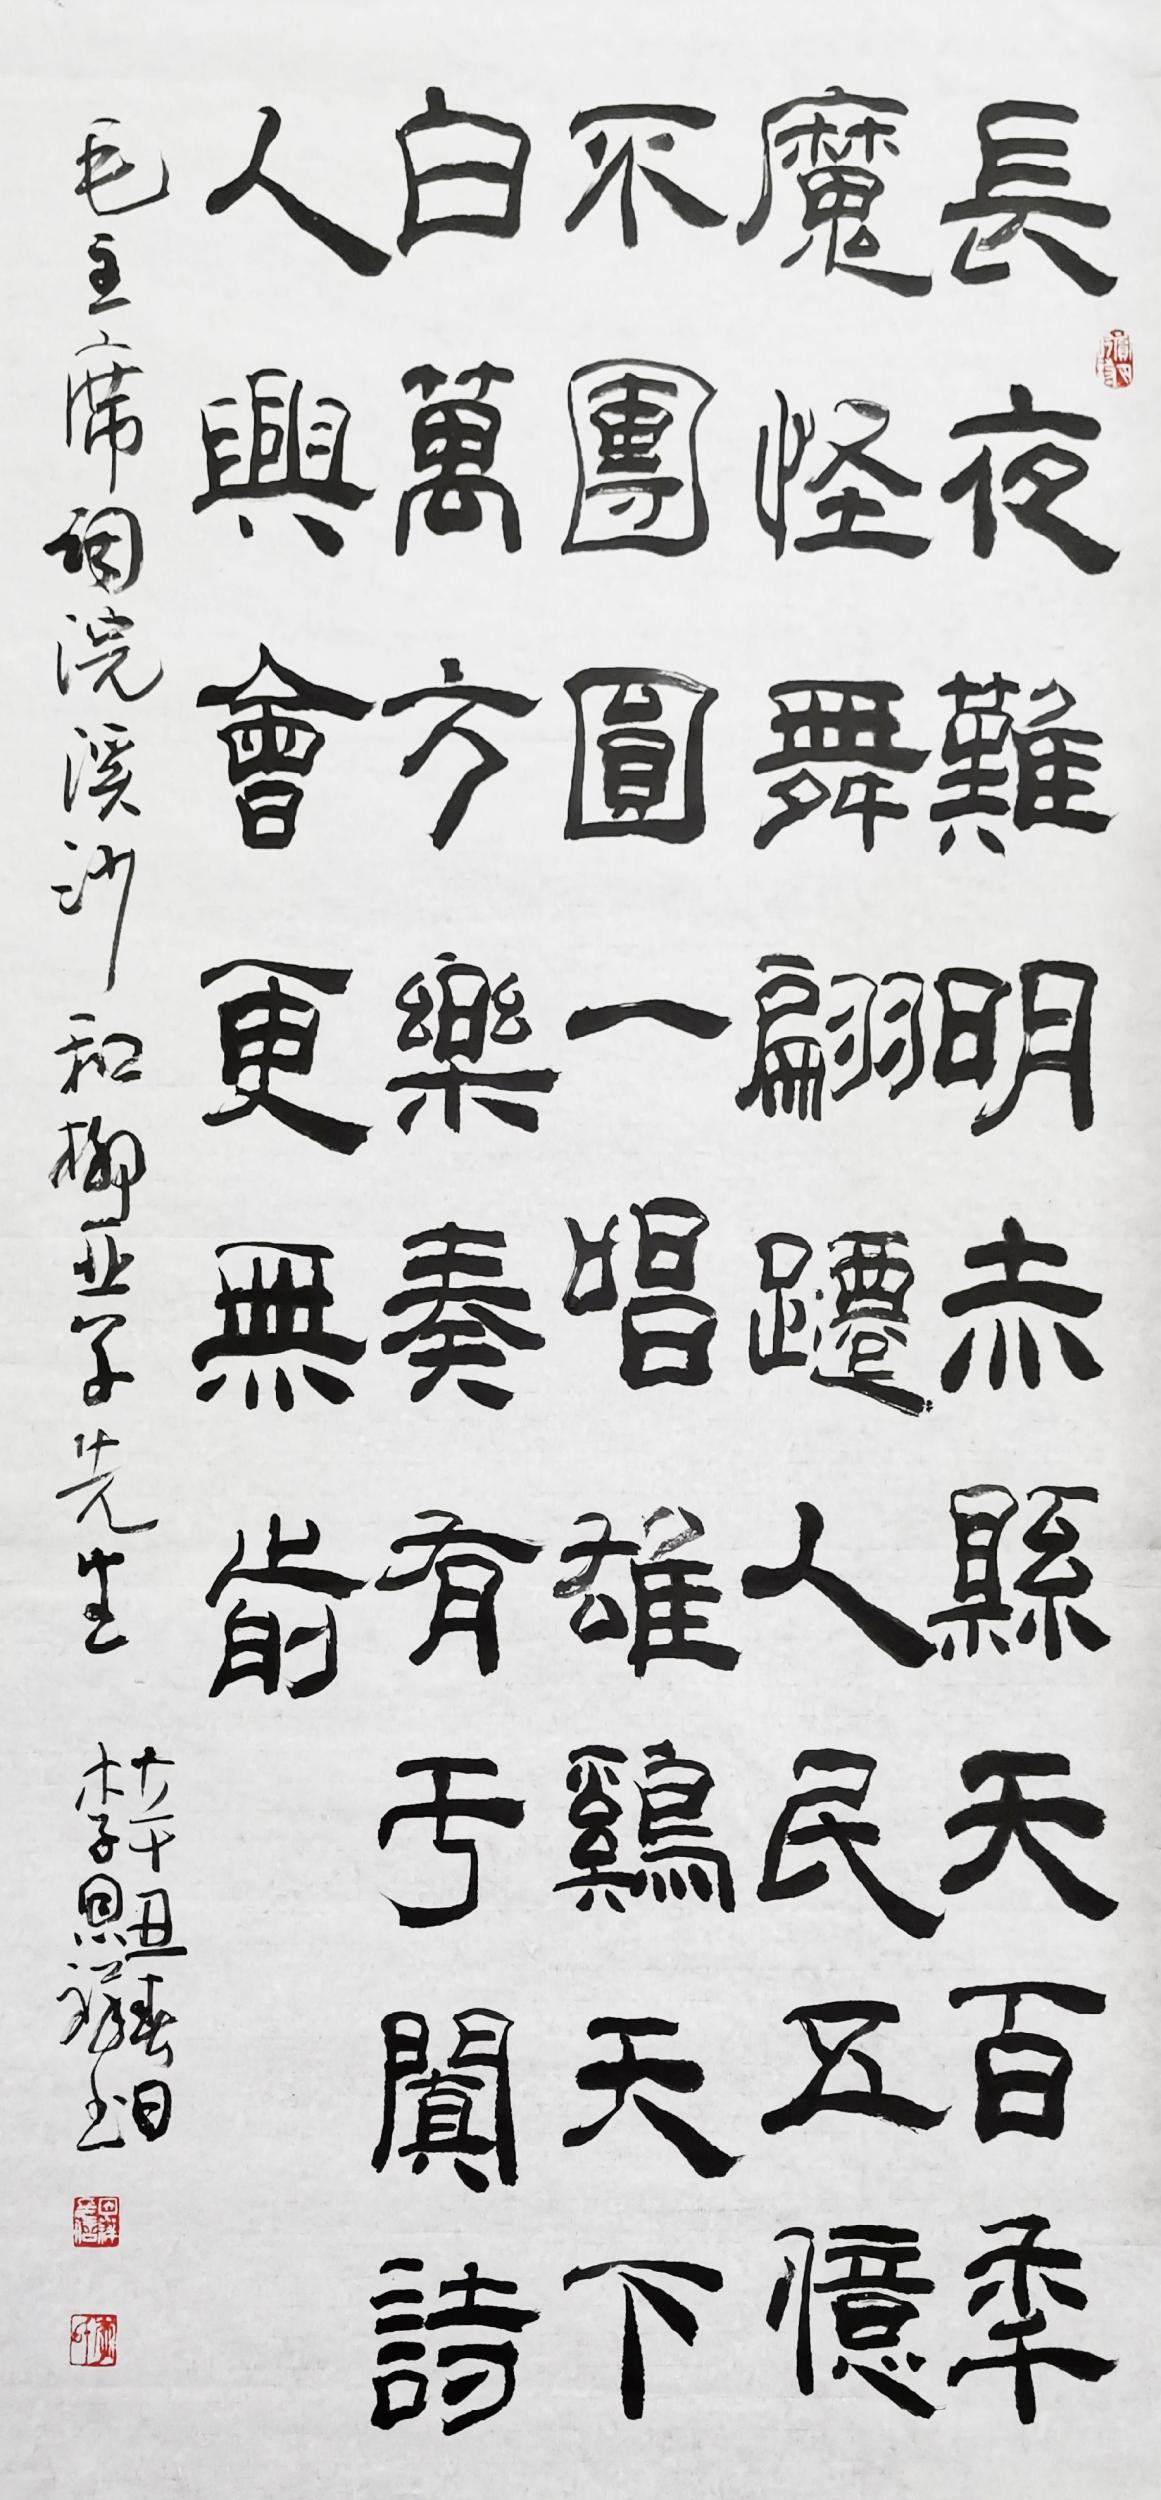 長夜難明赤縣天百秊
魔怪舞翩躚人民五億
不團圓一唱雄鷄天下
白萬方樂奏有于闐詩
人興會更無前
毛主席词浣溪沙和柳亚子先生
辛丑春日
李恩